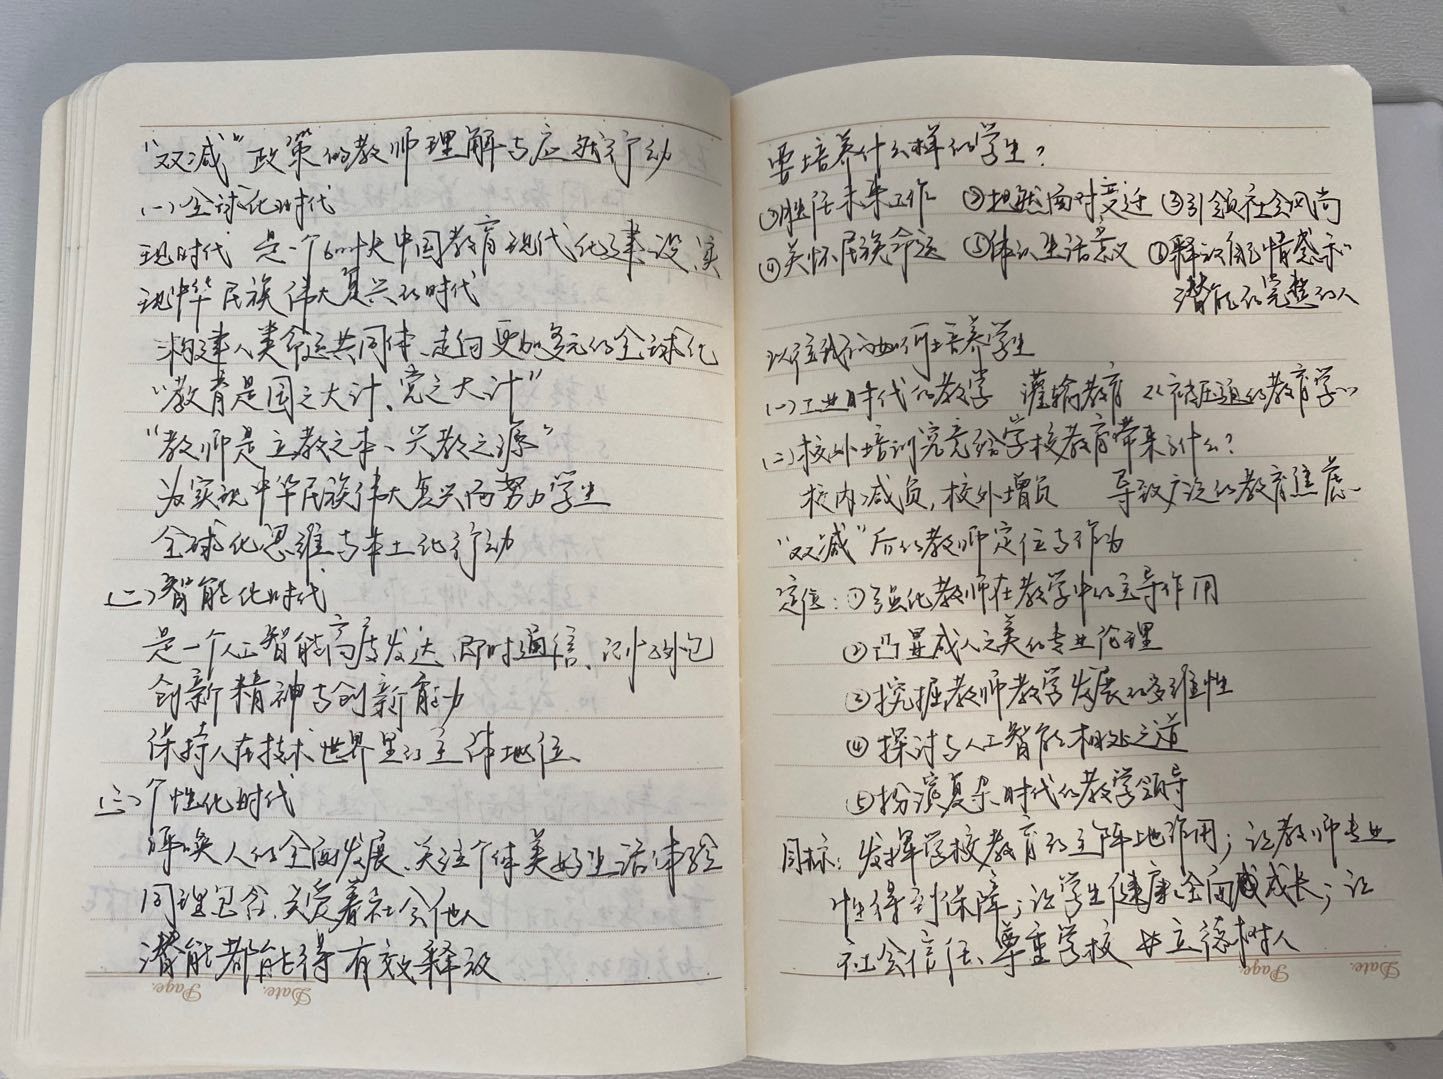 “双减”政策的教师理解与应然行动
(一)全球化时代
现时代 是一个 中国教育现代化建设、实
现中华民族伟大复兴的时代
构建人类命运共同体、走向更加多元的全球化
“教育是国之大计、党之大计”
“教师是立教之本、兴教之源”
为实现中华民族伟大复兴而努力学生
全球化思维与本土化行动
(二)智能化时代
是一个人工智能高度发达、即时通信、 外包
创新精神与创新能力
保持人在技术世界里的主体地位、
(三)个性化时代
呼唤人的全面发展、关注个体美好生活体验
同理包容、关爱着社会他人
潜能都能得有效释放
要培养什么样的学生?
①胜任未来工作 ②坦然面对变迁 ③引领社会风尚
④关怀民族命运 ⑤体认生活意义 ⑥释放 情感和
潜能的完整的人
以往我们如何培养学生
(一)工业时代的教学 灌输教育 《被压迫的教育学》
(二)校外培训究竟给学校教育带来了什么?
校内减负,校外增负 导致广泛的教育焦虑
“双减”后的教师定位与作为
定位:①强化教师在教学中的主导作用
②凸显成人之美的专业伦理
③挖掘教师教学发展的多维性
④探讨与人工智能相处之道
⑤扮演复杂时代的教学领导
目标:发挥学校教育的主阵地作用;让教师专业
性得到保障;让学生健康全面成长;让
社会信任、尊重学校 立德树人
Date.
Page.
Date.
Page.